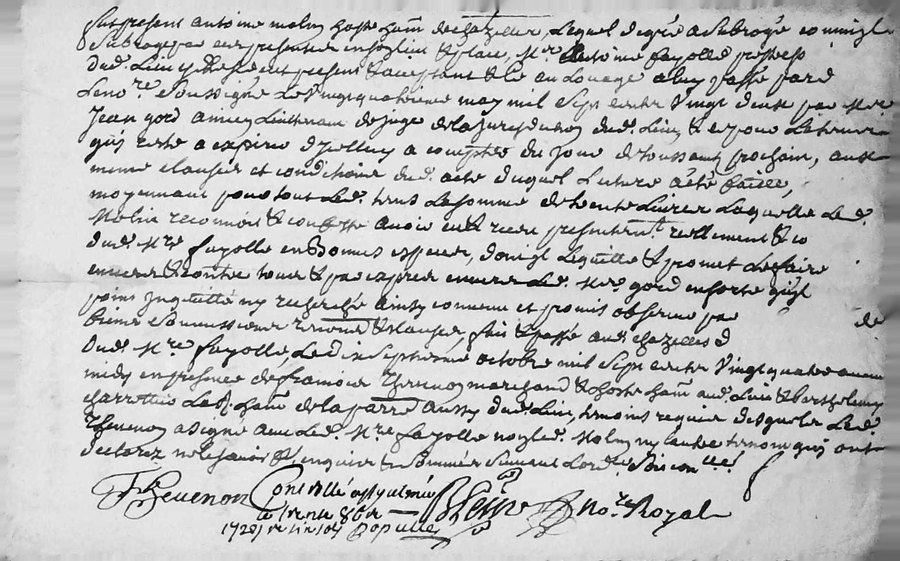 fut present antoine molin hoste hant de chazelles, Lequel de gré a subrogé comme il
subroge par ces presentes en son lieu & place, Mre Antoine fayolle
dud. Lieu y present & acceptant & ce au Louage a luy passé par d
Le nore soussigné Le Vingt quatrieme may mil sept cents Vingt deux par Mre
Jean gord ancien Lieutenant de juge de la jurisdiction dud. Lieu, & ce pour Le temps
quy reste a expirer d'yceluy a compter du jour de toussaint prochain, aux
meme clauses et conditions dud. acte duquel Lecture a été faitte,
moyennant pour tout Led. temps La somme de trente Livres Laquelle Led.
Molin reconnoit & confesse avoir eu & receu presentemt. reellement &
dud. Mre fayolle en bonnes especes, dont il Le quitte & promet Le faire
envers & contre tous & par expres envers Led. Mre gord en sorte qu'il
point Inquietté ny recherché Ainsy convenu et promis observer par de
bienes soumissions renoncé & clauses, fait & passé aud. chazelles d
dud. Mre fayolle, Le dix septieme octobre mil sept cents Vingt quatre avant
midy en presence de francois Thevenon marchand & hoste hant aud. Lieu & barthelemy
charrettier hant de la aussy dud. Lieu temoins requis desquels Led.
Thevenon a signé avec Led. Mre fayolle non Led. Molin ny Lautre temoin quy ont
declarez ne scavoir & enquis & sommés suivant Lordce
Thevenon Controllé
Le trente 8bre nore Royal